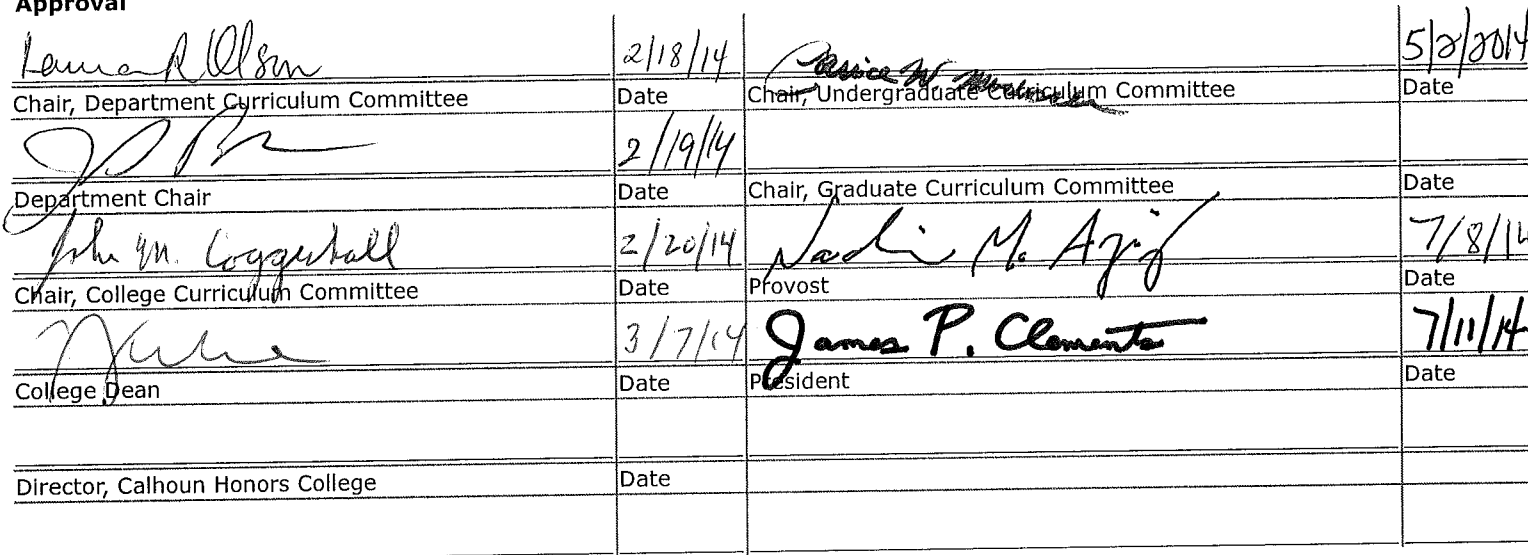 Approval
Laura R Olson 2/18/14 5/2/2014
Chair, Department Curriculum Committee Date Chair, Undergraduate Curriculum Committee Date
2/19/14
Department Chair Date Chair, Graduate Curriculum Committee Date
John M. Coggeshall 2/20/14 Nadim M. Aziz 7/8/14
Chair, College Curriculum Committee Date Provost Date
3/7/14 James P. Clements 7/11/14
College Dean Date President Date
Director, Calhoun Honors College Date